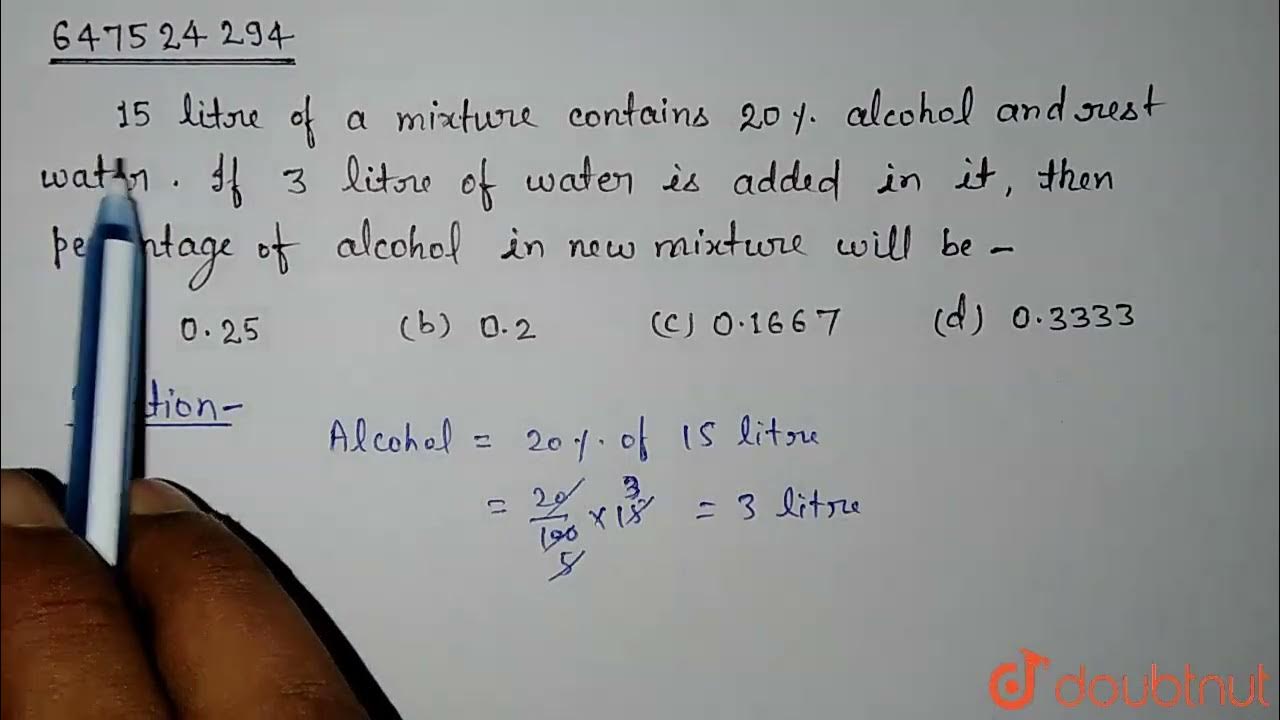 647524294
15 litre of a mixture contains 20%. alcohol and rest
water. If 3 litre of water is added in it, then
of alcohol in new mixture will be -
0.25 (b) 0.2 (c) 0.1667 (d) 0.3333
Alcohol = 20%. of 15 litre
= 20/100 × 15 3 = 3 litre
5
doubtnut